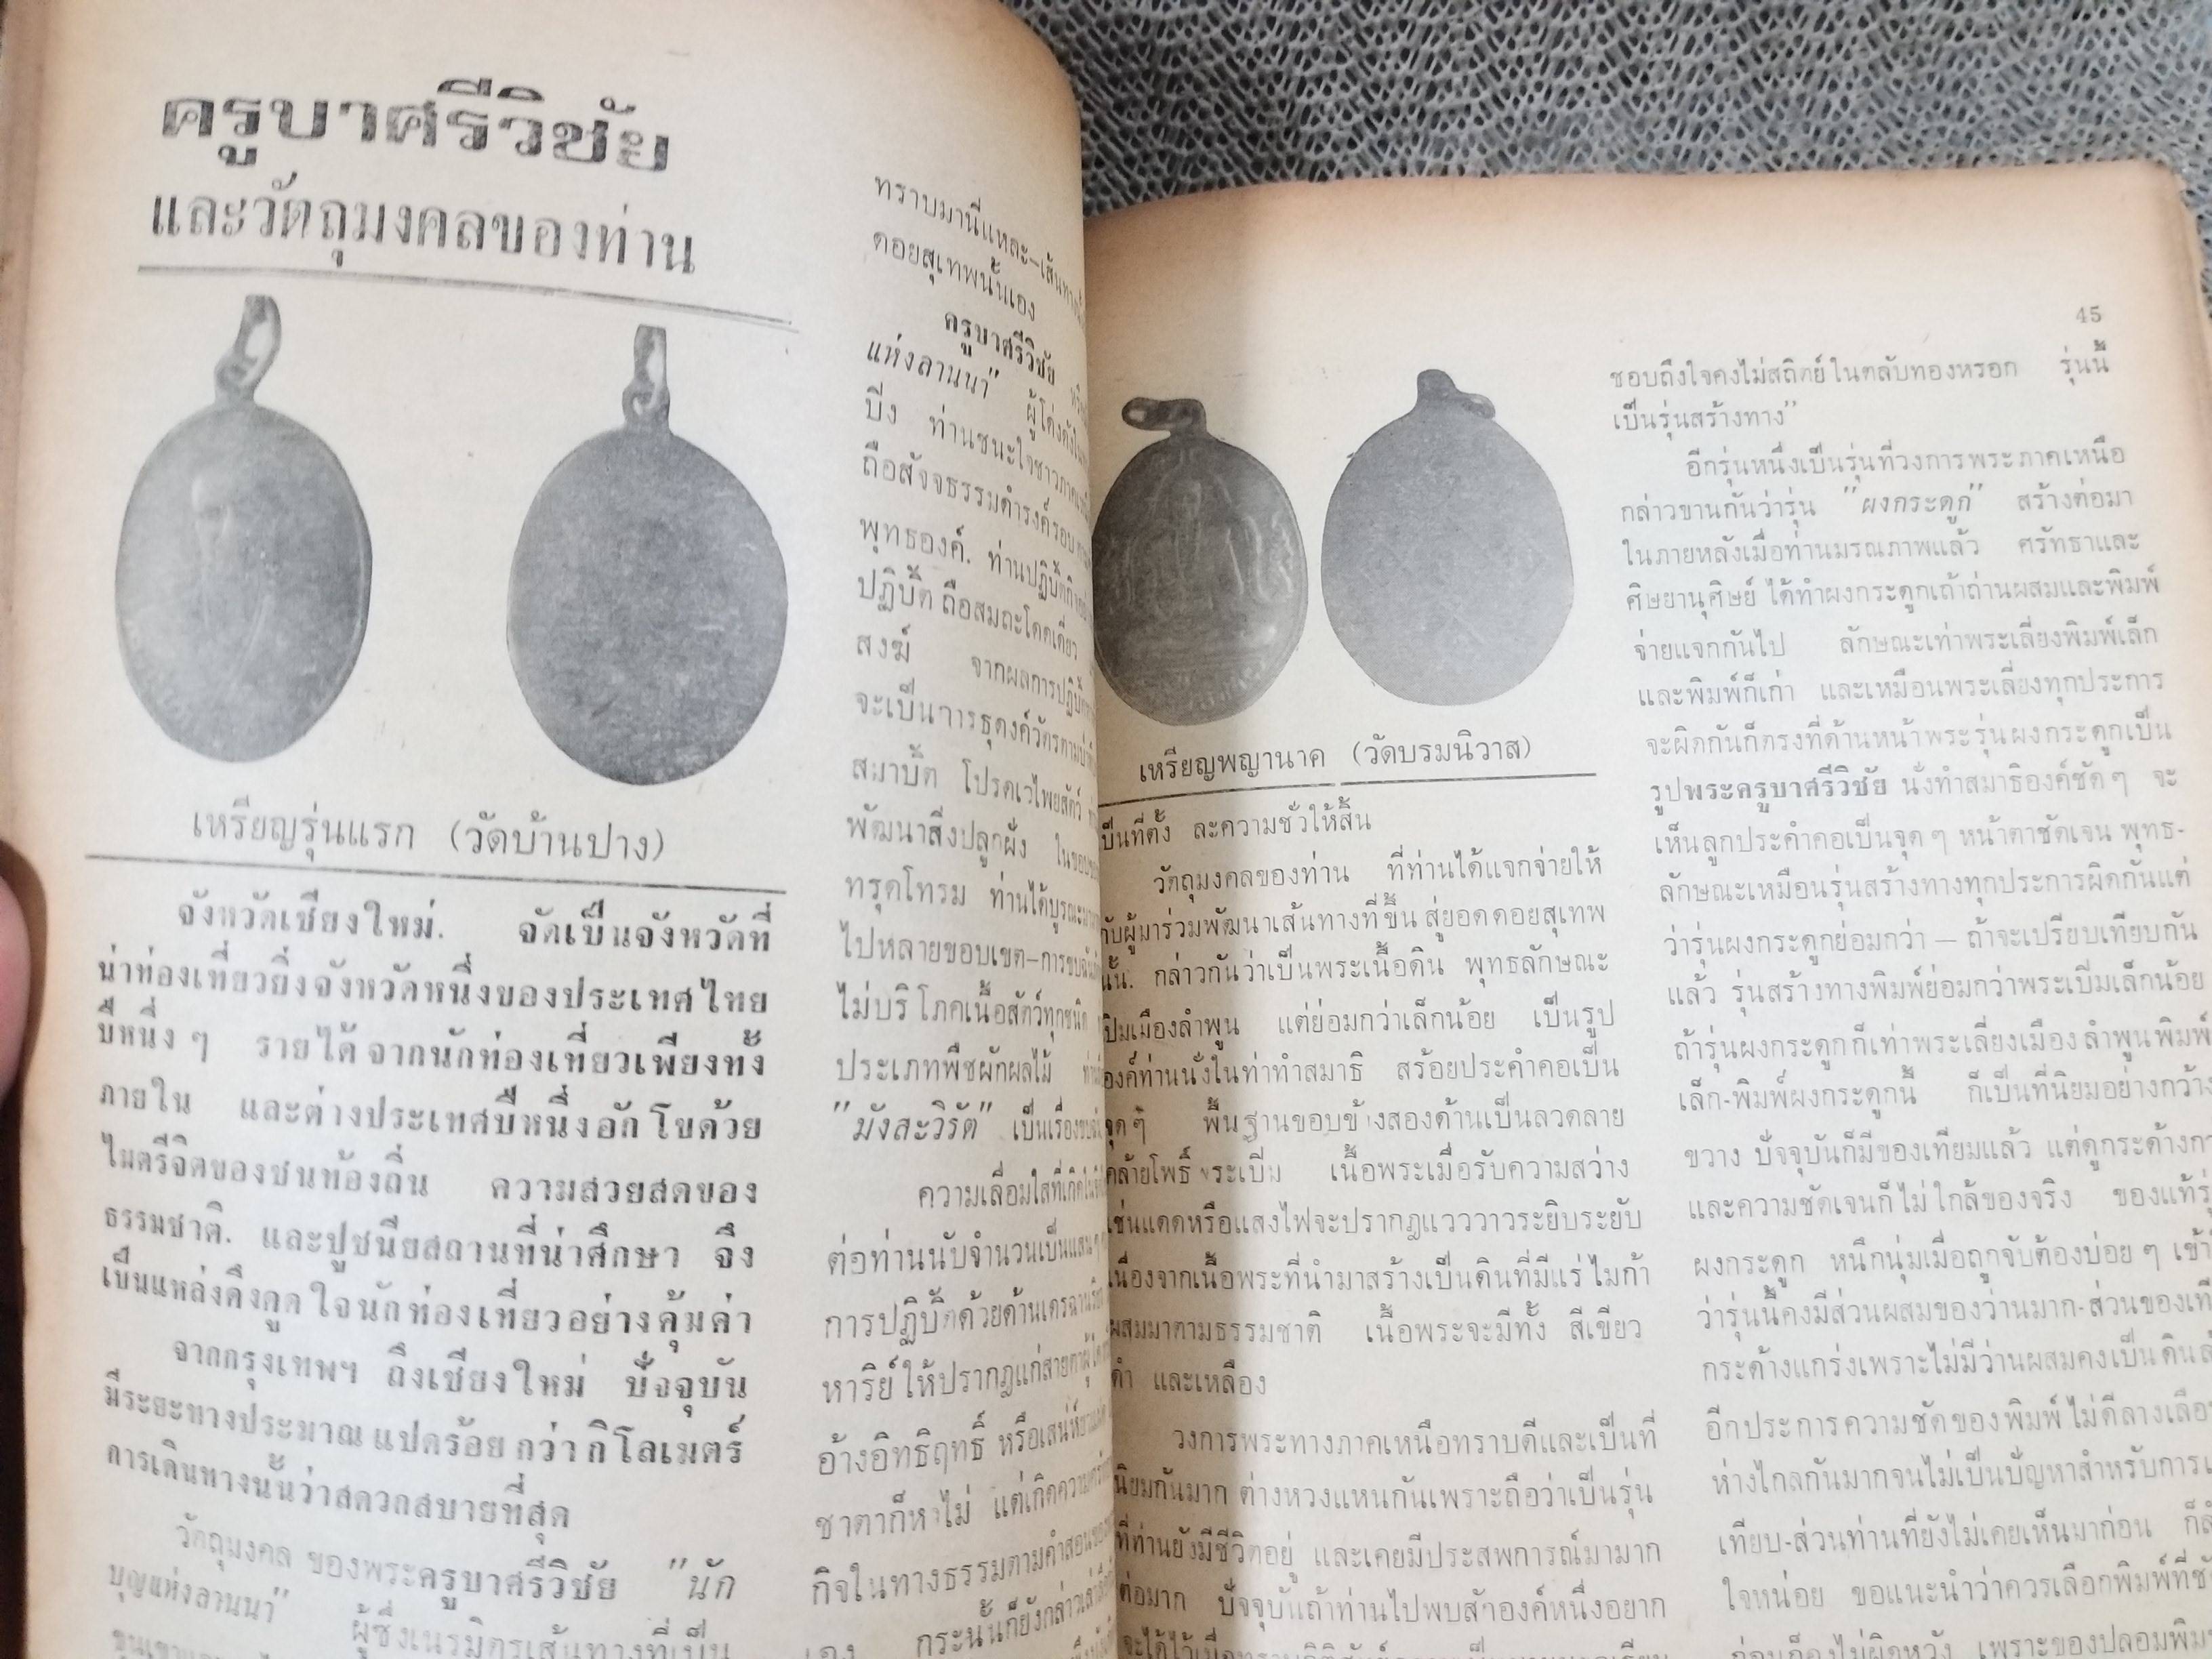 ครูบาศรีวิชัย
และวัตถุมงคลของท่าน
เหรียญรุ่นแรก (วัดบ้านปาง)
จังหวัดเชียงใหม่. จัดเป็นจังหวัดที่
น่าท่องเที่ยวยิ่งจังหวัดหนึ่งของประเทศไทย
ปีหนึ่ง ๆ รายได้จากนักท่องเที่ยวเพียงทั้ง
ภายใน และต่างประเทศปีหนึ่งอักโขด้วย
ไมตรีจิตของชนท้องถิ่น ความสวยสดของ
ธรรมชาติ. และปูชนียสถานที่น่าศึกษา จึง
เป็นแหล่งดึงดูดใจนักท่องเที่ยวอย่างคุ้มค่า
จากกรุงเทพฯ ถึงเชียงใหม่ ปัจจุบัน
มีระยะทางประมาณแปดร้อยกว่ากิโลเมตร์
การเดินทางนั้นว่าสดวกสบายที่สุด
วัตถุมงคล ของพระครูบาศรีวิชัย "นัก
บุญแห่งลานนา" ผู้ซึ่งเนรมิตรเส้นทางที่เป็น
ทราบมานี่แหละ–เส้นทาง
ดอยสุเทพนั้นเอง
ครูบาศรีวิชัย
แห่งลานนา" ผู้โด่งดัง
ปิ่ง ท่านชนะใจชาวภาคเหนือ
ถือสัจจธรรมดำรงค์รอบ
พุทธองค์. ท่านปฏิบัติกิจ
ปฏิบัติ ถือสมถะโดดเดี่ยว
สงฆ์ จากผลการปฏิบัติ
จะเป็นการธุดงค์วัตรตาม
สมาบัติ โปรดเวไพยสัตว์
พัฒนาสิ่งปลูกฝัง
ทรุดโทรม ท่านได้บูรณะ
ไปหลายขอบเขต–การขบฉัน
ไม่บริโภคเนื้อสัตว์ทุกชนิด
ประเภทพืชผักผลไม้
"มังสะวิรัต" เป็นเรื่อง
ความเลื่อมใสที่เกิด
ต่อท่านนับจำนวนเป็นแสน ๆ
การปฏิบัติด้วยด้านเดรฉาน
หาริย์ให้ปรากฏแก่สายตา
อ้างอิทธิฤทธิ์ หรือเสน่ห์
ชาตาก็หาไม่ แต่เกิดความ
กิจในทางธรรมตามคำสอน
กระนั้นก็ยังกล่าว
45
เหรียญพญานาค (วัดบรมนิวาส)
เป็นที่ตั้ง ละความชั่วให้สิ้น
วัตถุมงคลของท่าน ที่ท่านได้แจกจ่ายให้
กับผู้มาร่วมพัฒนาเส้นทางที่ขึ้นสู่ยอดดอยสุเทพ
นั้น. กล่าวกันว่าเป็นพระเนื้อดิน พุทธลักษณะ
เปิมเมืองลำพูน แต่ย่อมกว่าเล็กน้อย เป็นรูป
องค์ท่านนั่งในท่าทำสมาธิ สร้อยประคำคอเป็น
จุด ๆ พื้นฐานขอบข้างสองด้านเป็นลวดลาย
คล้ายโพธิ์พระเปิม เนื้อพระเมื่อรับความสว่าง
เช่นแดดหรือแสงไฟจะปรากฏแวววาวระยิบระยับ
เนื่องจากเนื้อพระที่นำมาสร้างเป็นดินที่มีแร่ไมก้า
ผสมมาตามธรรมชาติ เนื้อพระจะมีทั้ง สีเขียว
ดำ และเหลือง
วงการพระทางภาคเหนือทราบดีและเป็นที่
นิยมกันมาก ต่างหวงแหนกันเพราะถือว่าเป็นรุ่น
ที่ท่านยังมีชีวิตอยู่ และเคยมีประสพการณ์มามาก
ต่อมาก ปัจจุบันถ้าท่านไปพบสักองค์หนึ่งอยาก
ชอบถึงใจคงไม่สถิตย์ในตลับทองหรอก รุ่นนี้
เป็นรุ่นสร้างทาง"
อีกรุ่นหนึ่งเป็นรุ่นที่วงการพระภาคเหนือ
กล่าวขานกันว่ารุ่น "ผงกระดูก" สร้างต่อมา
ในภายหลังเมื่อท่านมรณภาพแล้ว ศรัทธาและ
ศิษยานุศิษย์ ได้ทำผงกระดูกเถ้าถ่านผสมและพิมพ์
จ่ายแจกกันไป ลักษณะเท่าพระเลี่ยงพิมพ์เล็ก
และพิมพ์ก็เก่า และเหมือนพระเลี่ยงทุกประการ
จะผิดกันก็ตรงที่ด้านหน้าพระรุ่นผงกระดูกเป็น
รูปพระครูบาศรีวิชัย นั่งทำสมาธิองค์ชัด ๆ จะ
เห็นลูกประคำคอเป็นจุด ๆ หน้าตาชัดเจน พุทธ-
ลักษณะเหมือนรุ่นสร้างทางทุกประการผิดกันแต่
ว่ารุ่นผงกระดูกย่อมกว่า — ถ้าจะเปรียบเทียบกัน
แล้ว รุ่นสร้างทางพิมพ์ย่อมกว่าพระเปิมเล็กน้อย
ถ้ารุ่นผงกระดูกก็เท่าพระเลี่ยงเมืองลำพูนพิมพ์
เล็ก-พิมพ์ผงกระดูกนี้ ก็เป็นที่นิยมอย่างกว้าง
ขวาง ปัจจุบันก็มีของเทียมแล้ว แต่ดูกระด้าง
และความชัดเจนก็ไม่ใกล้ของจริง ของแท้
ผงกระดูก หนึกนุ่มเมื่อถูกจับต้องบ่อย ๆ
ว่ารุ่นนี้คงมีส่วนผสมของว่านมาก-ส่วนของ
กระด้างแกร่งเพราะไม่มีว่านผสมคงเป็นดิน
อีกประการความชัดของพิมพ์ไม่ดีลางเลือน
ห่างไกลกันมากจนไม่เป็นปัญหาสำหรับการ
เทียบ-ส่วนท่านที่ยังไม่เคยเห็นมาก่อน
ใจหน่อย ขอแนะนำว่าควรเลือกพิมพ์ที่
ก่อนก็คงไม่ผิดหวัง เพราะของปลอม